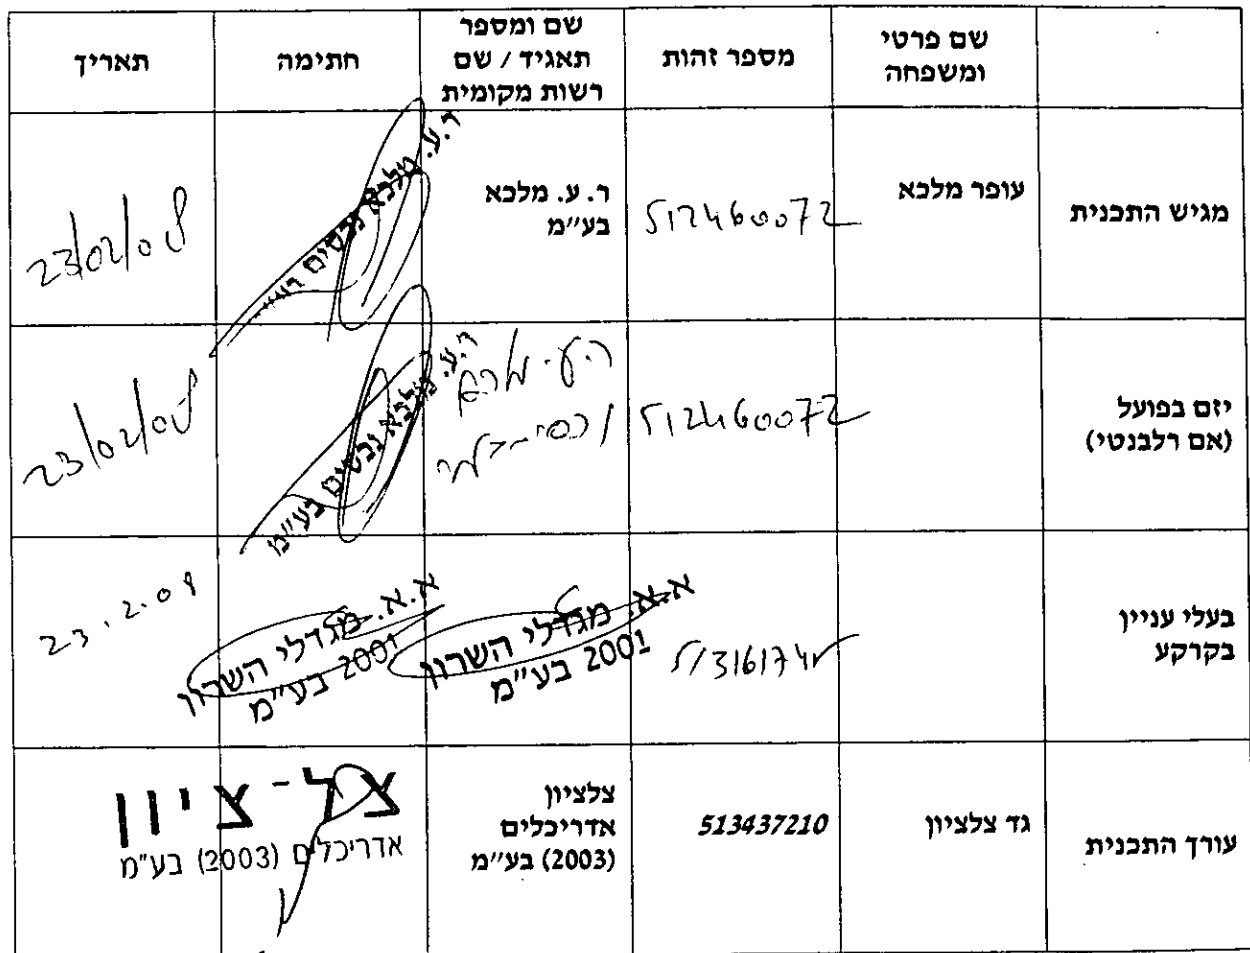 שם פרטי
ומשפחה
מספר זהות
שם ומספר
תאגיד / שם
רשות מקומית
חתימה
תאריך
מגיש התכנית
עופר מלכא
512460072
ר. ע. מלכא
בע"מ
ר.ע. מלכא נכסים בע"מ
23/02/08
יזם בפועל
(אם רלבנטי)
512460072
ר.ע. מלכא
נכסים בע"מ
ר.ע. מלכא נכסים בע"מ
23/02/08
בעלי עניין
בקרקע
א.א. מגדלי השרון
2001 בע"מ
א.א. מגדלי השרון
2001 בע"מ
23.2.08
עורך התכנית
גד צלציון
513437210
צלציון
אדריכלים
(2003) בע"מ
צל-ציון
אדריכלים (2003) בע"מ